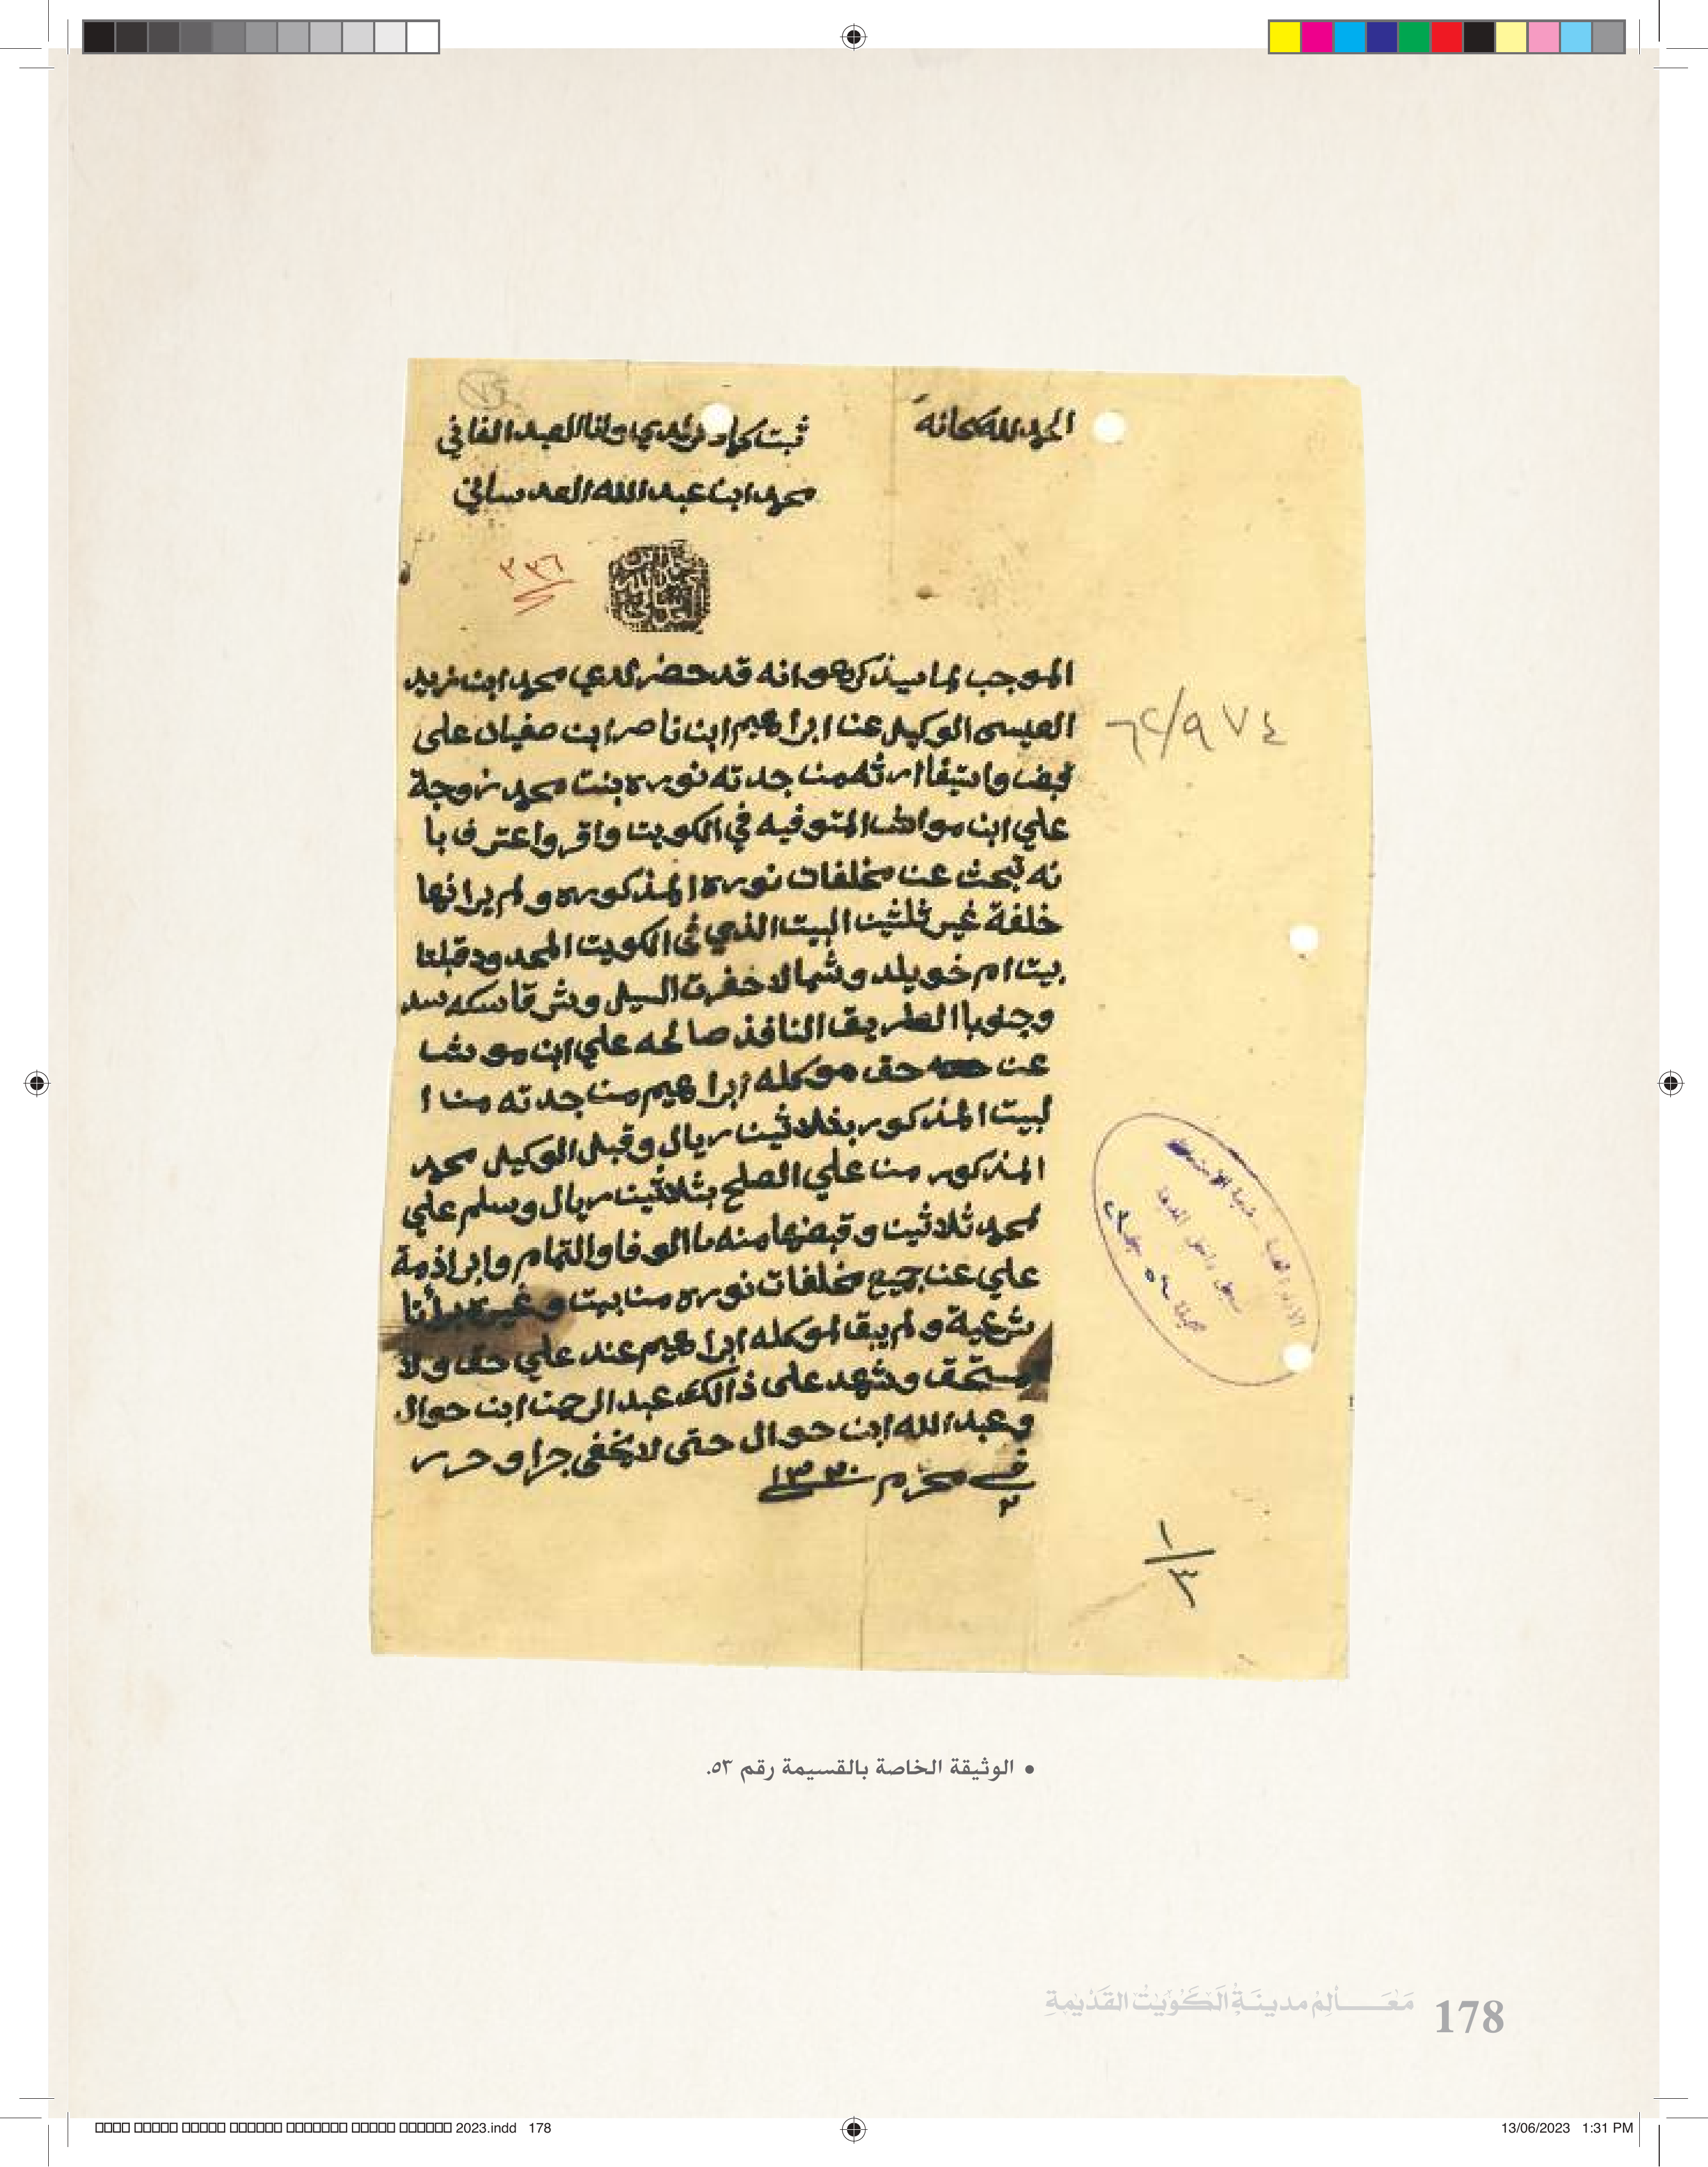 الحمد لله سبحانه
ثبت لدي وانا العبد الفاني
محمد ابن عبدالله العدساني
٣٣٦
الموجب لما سيذكر هو انه قد حضر لدي محمد ابن زيد
العيسى الوكيل عن ابراهيم ابن ناصر ابن صفيان على
قبض واستيفا ارثه من جدته نوره بنت محمد زوجة
علي ابن مواش المتوفيه في الكويت واقر واعترف با
نه تبحث عن مخلفات نوره المذكوره ولم يرا انها
خلفة غير ثلثين البيت الذي في الكويت المحدود قبلتا
بيت ام خويلد وشمالا حفرت السيل وشرقا سكه سد
وجنوبا الطريق النافذ صالحه علي ابن مواش
عن حق موكله ابراهيم من جدته من ا
لبيت المذكور بثلاثين ريال وقبل الوكيل محمد
المذكور من علي الصلح بثلاثين ريال وسلم علي
لمحمد ثلاثين وقبضها منه باالوفا والتمام وابرا ذمة
علي عن جميع مخلفات نوره من بيت وغيره برأتا
شرعية ولم يبقا لموكله ابراهيم عند علي حق ولا
مستحق وشهد على ذالك عبد الرحمن ابن حوال
وعبدالله ابن حوال حتى لا يخفى جرا وحرر
في ٢ محرم ١٣٣٠
٦٢/٩٧٤
١/٣
• الوثيقة الخاصة بالقسيمة رقم ٥٣.
مَعَالِمُ مدينَةِ الكُوَيْتْ القَدْيمَةِ 178
2023.indd 178
13/06/2023 1:31 PM